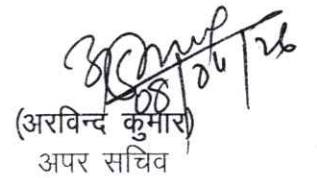 08/04/26
(अरविन्द कुमार)
अपर सचिव